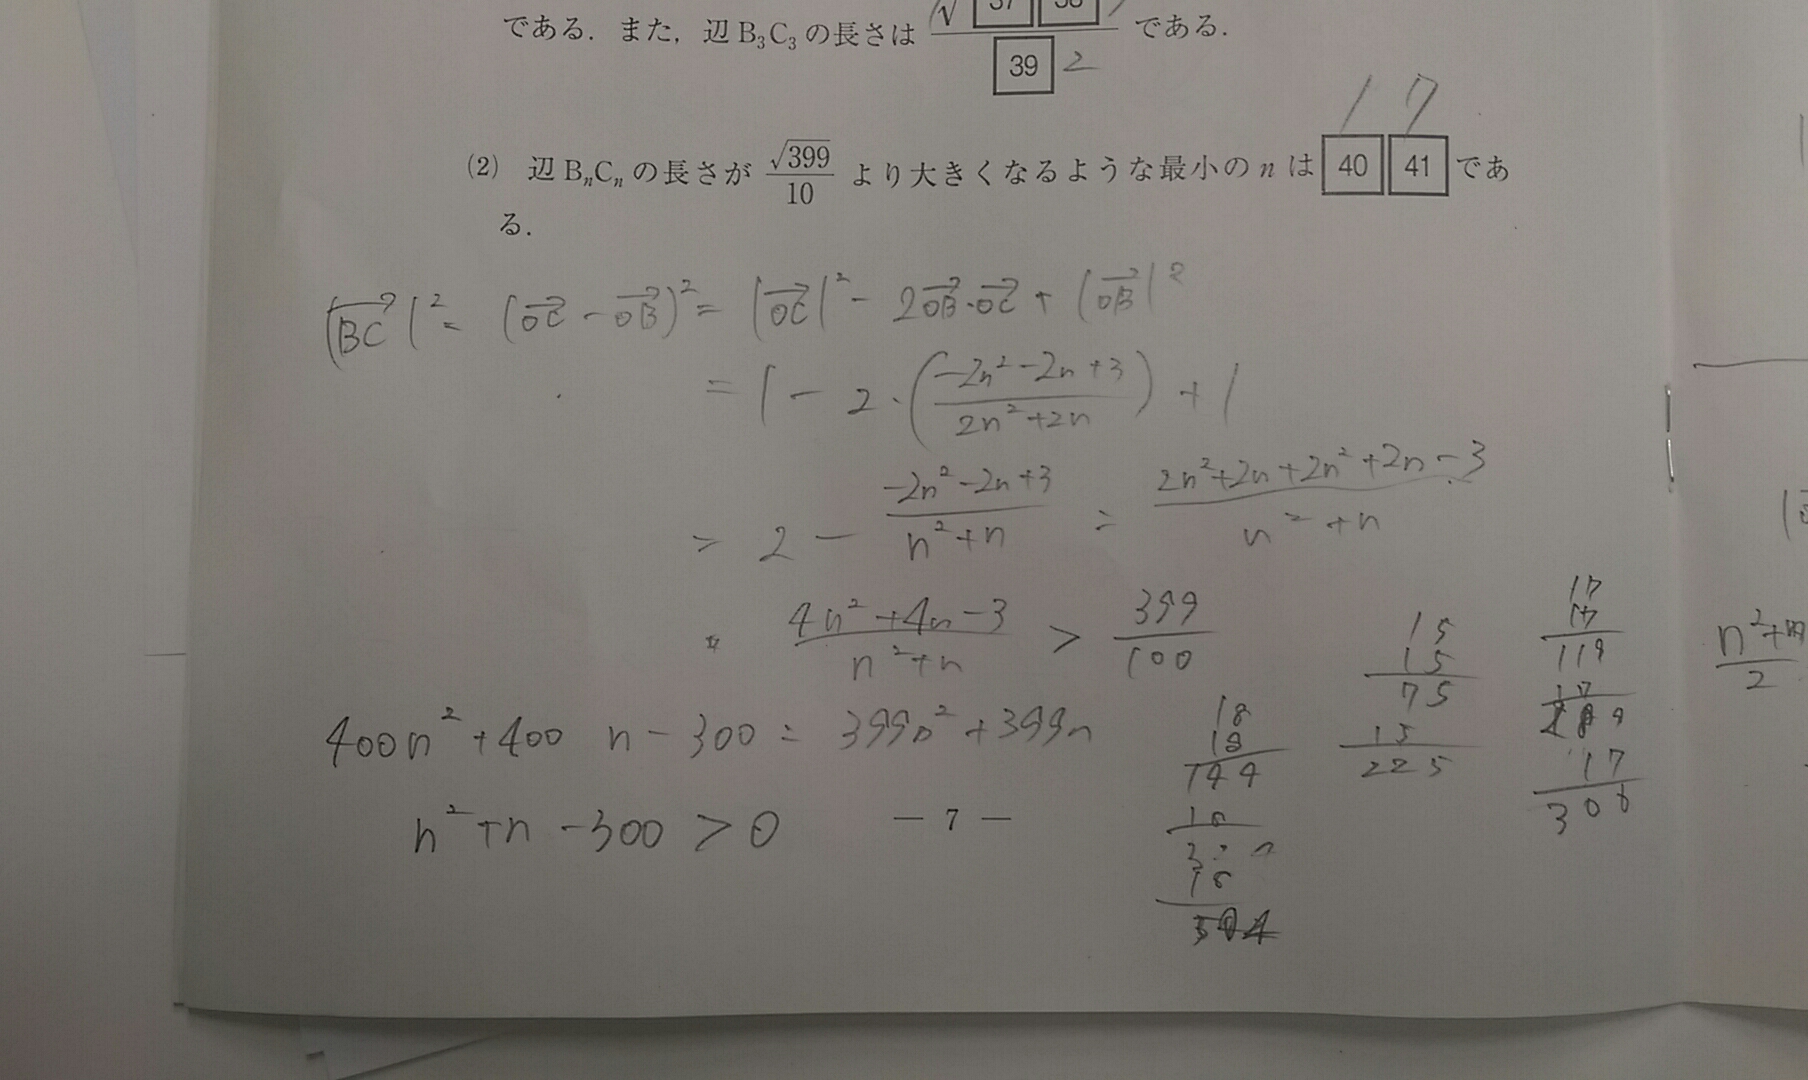 である．また，辺B₃C₃の長さは √37 38 / 39 である．
2
17
(2) 辺BₙCₙの長さが √399/10 より大きくなるような最小のnは 40 41 であ
る．
|BC|² = (OC - OB)² = |OC|² - 2OB·OC + |OB|²
= 1 - 2·((-2n²-2n+3)/(2n²+2n)) + 1
= 2 - (-2n²-2n+3)/(n²+n) = (2n²+2n+2n²+2n-3)/(n²+n)
(4n²+4n-3)/(n²+n) > 399/100
400n²+400n-300 = 399n²+399n
n²+n-300>0
— 7 —
18
18
144
18
15
15
75
15
225
17
17
119
17
289
17
306